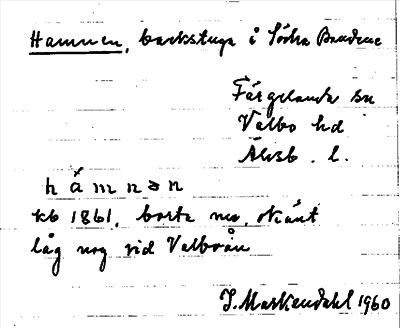 Hamnen, backstuga i Södra Bandene
Färgelanda sn
Valbo hd
Älvsb. l.
hámnən
kb 1861, borta nu, okänt
låg nog vid Valboån
I. Markendahl 1960